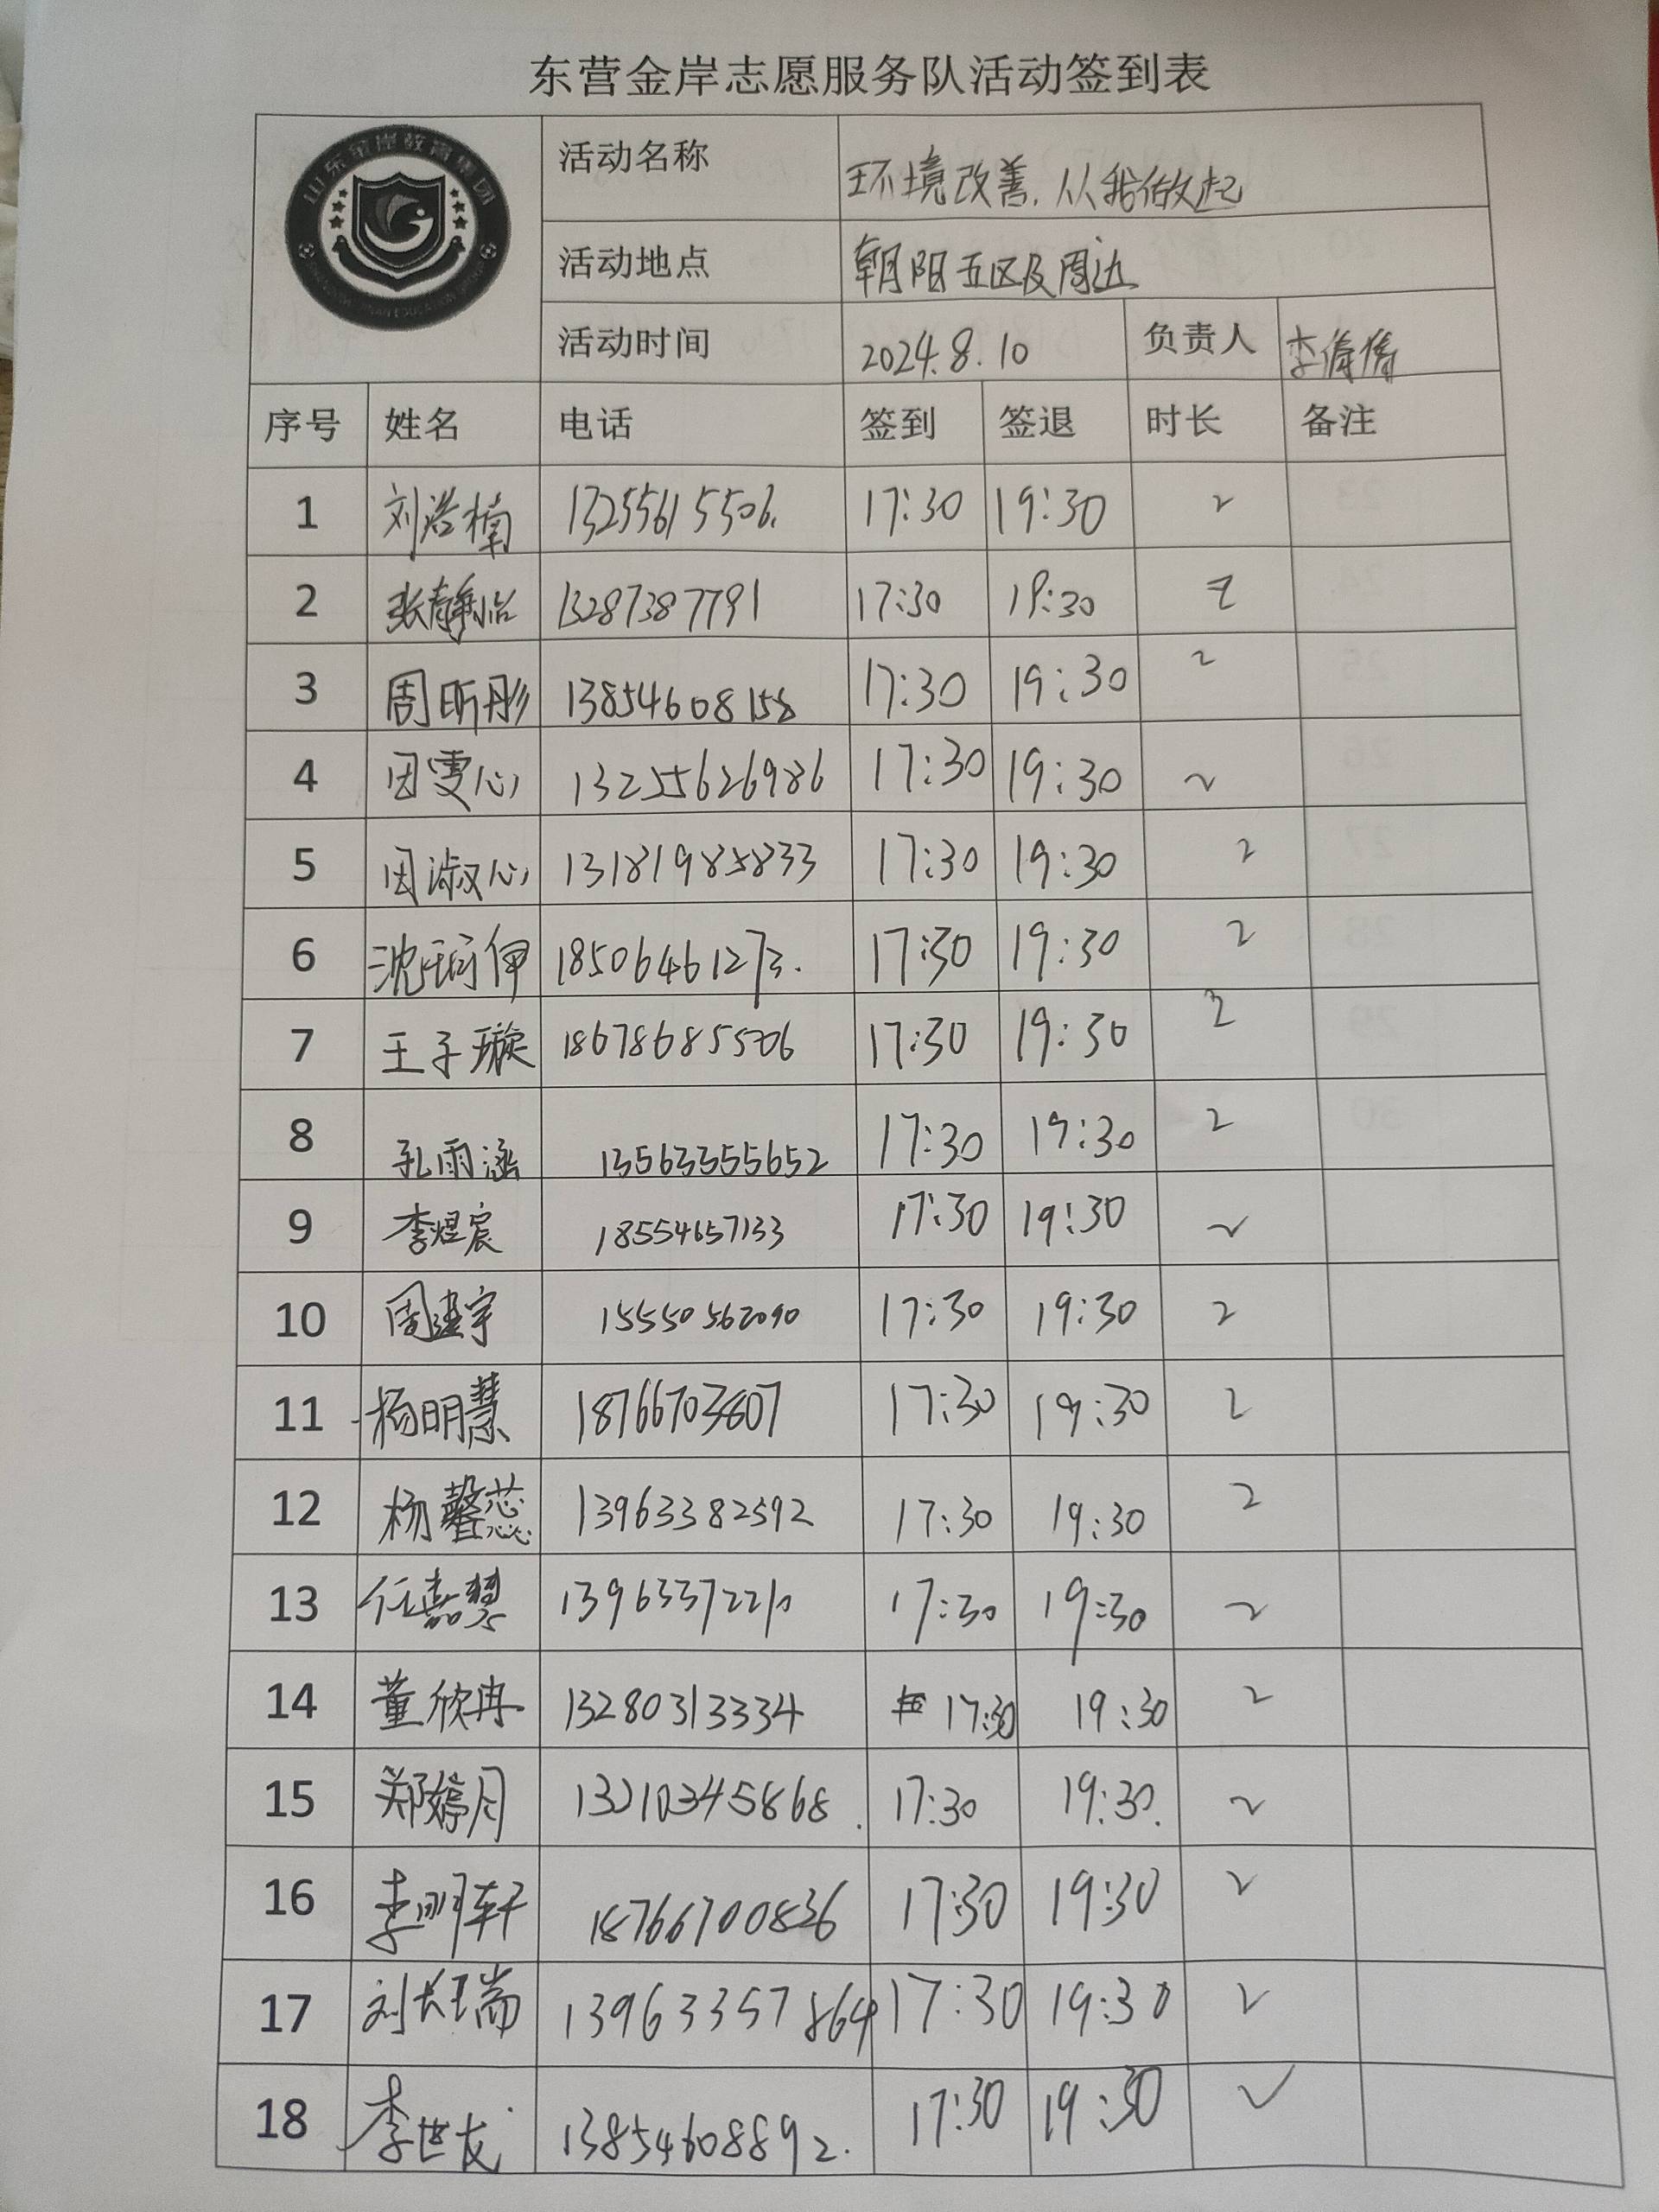 东营金岸志愿服务队活动签到表
山东金岸教育集团
活动名称 环境改善,从我做起
活动地点 朝阳五区及周边
活动时间 2024.8.10 负责人 李倩倩
序号 姓名 电话 签到 签退 时长 备注
1 刘浩楠 13255615506. 17:30 19:30 2
2 张静怡 13287387791 17:30 19:30 2
3 周昕彤 13854608158 17:30 19:30 2
4 田雯心 13255626986 17:30 19:30 2
5 田淑心 13181985833 17:30 19:30 2
6 沈 伊 18506461273. 17:30 19:30 2
7 王子璇 18678685506 17:30 19:30 2
8 孔雨涵 13563355652 17:30 19:30 2
9 李煜宸 18554657133 17:30 19:30 2
10 周建宇 15550562090 17:30 19:30 2
11 杨明慧 18766703807 17:30 19:30 2
12 杨馨蕊 13963382592 17:30 19:30 2
13 任嘉慧 13963372210 17:30 19:30 2
14 董欣冉 13280313334 17:30 19:30 2
15 郑婷月 13210345868. 17:30 19:30. 2
16 李明轩 18766700836 17:30 19:30 2
17 刘长瑞 13963357864 17:30 19:30 2
18 李世龙 13854608892. 17:30 19:30 ✓